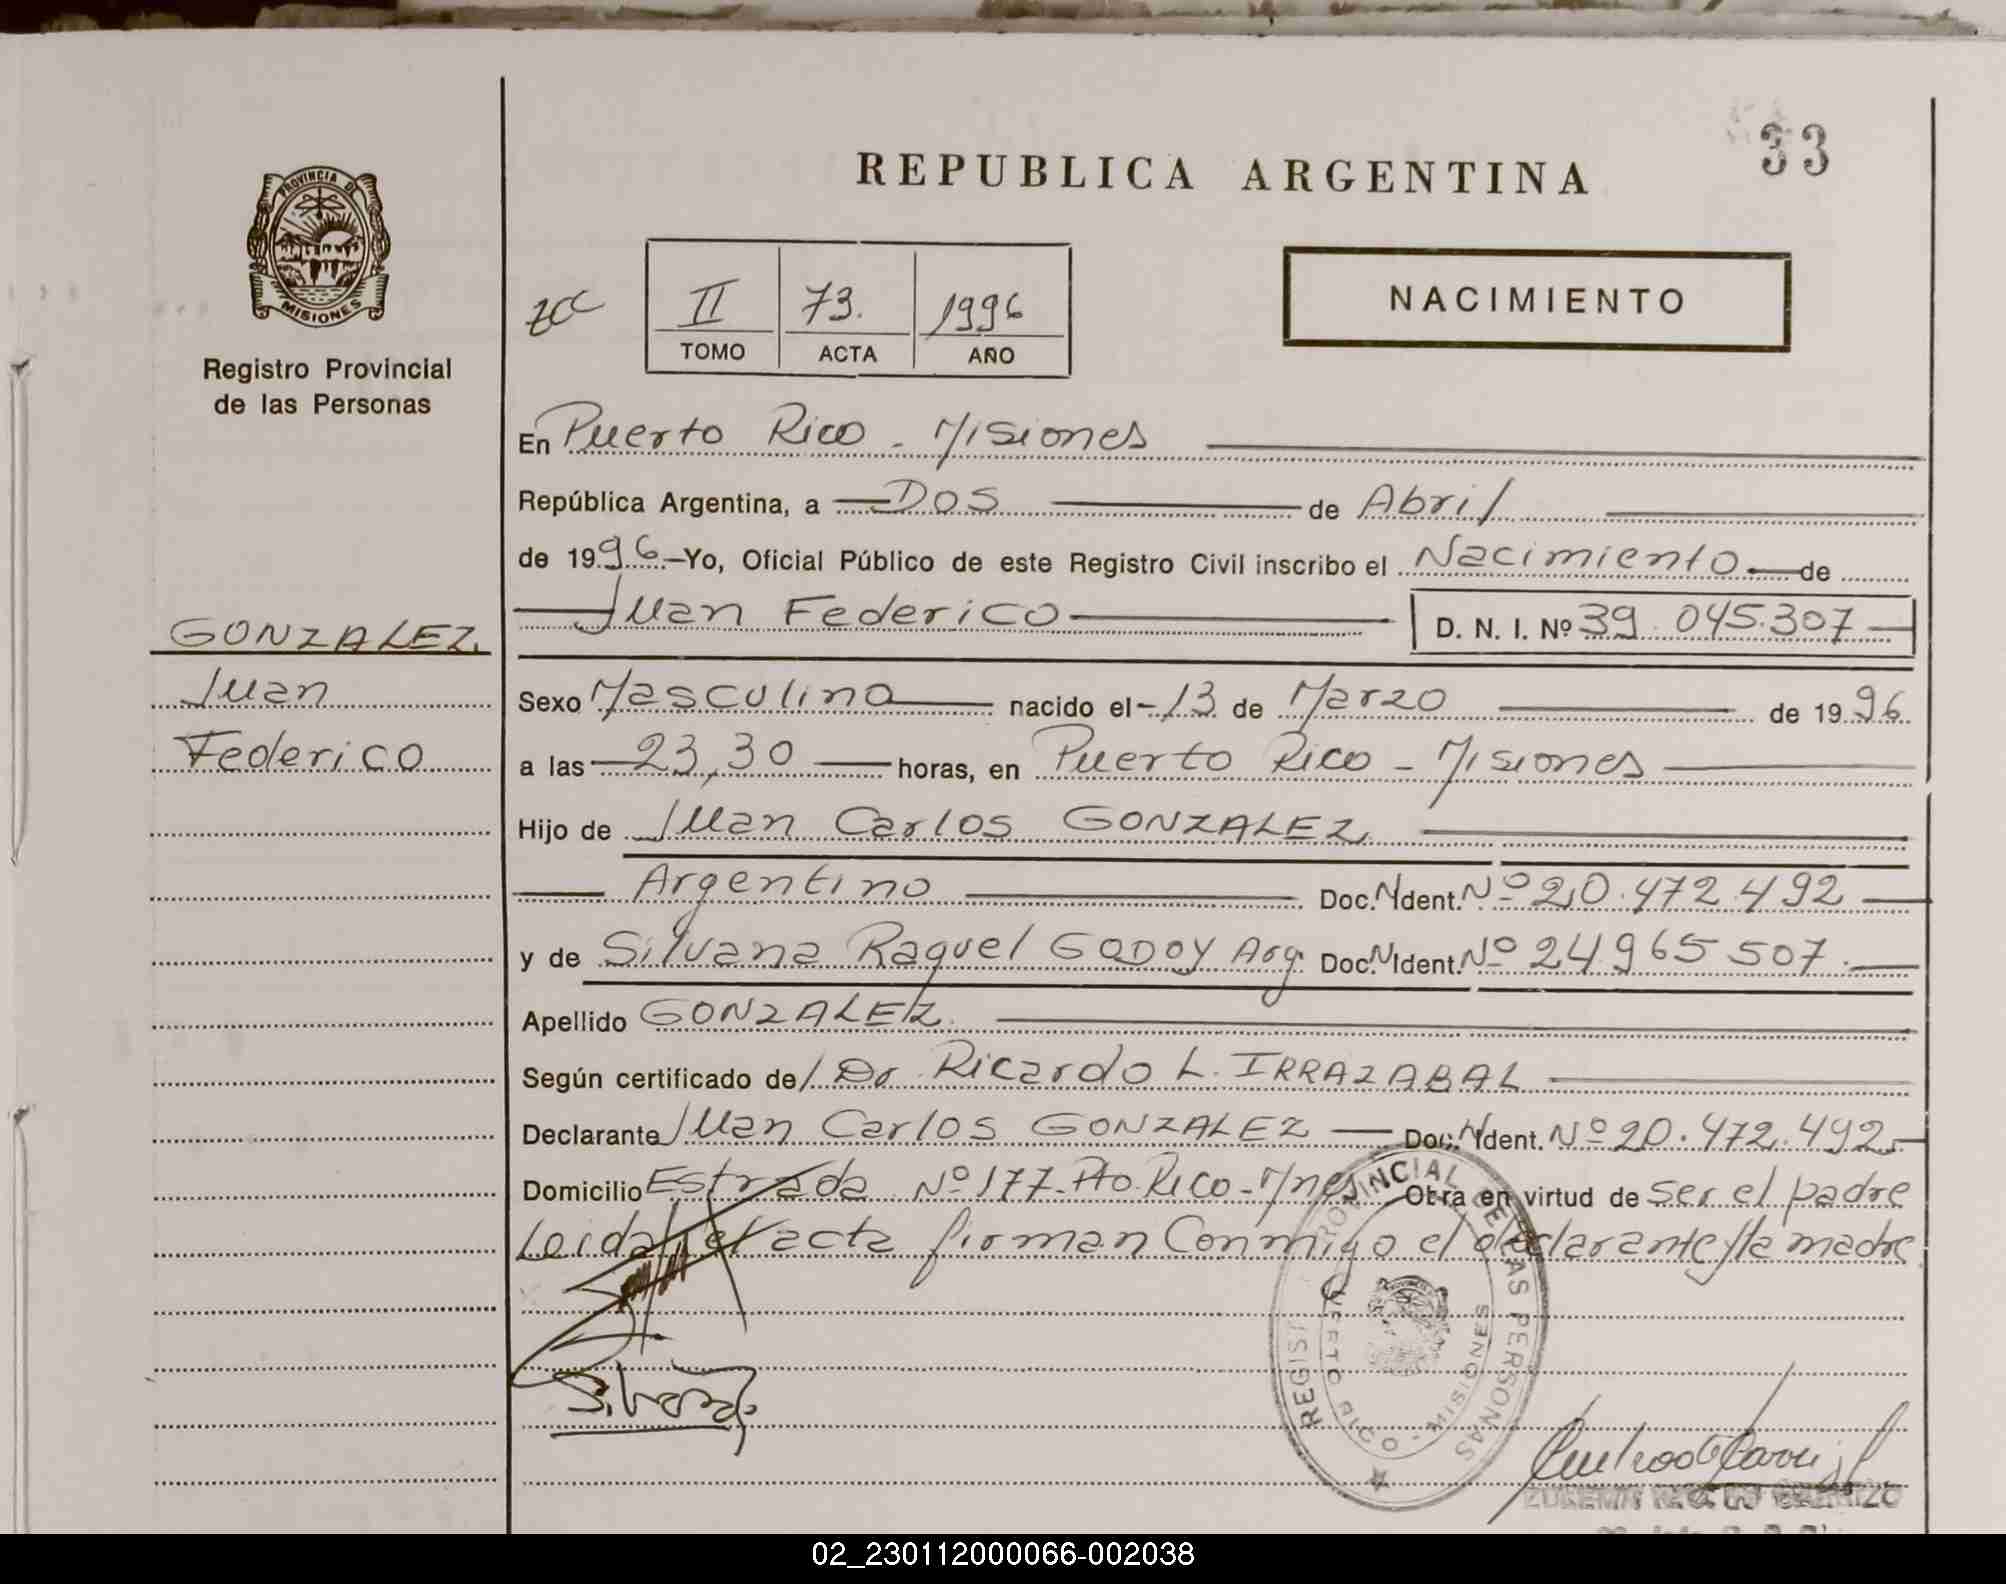 33
REPUBLICA ARGENTINA
PROVINCIA DE
MISIONES
Registro Provincial
de las Personas
II 73. 1996
TOMO ACTA AÑO
NACIMIENTO
En Puerto Rico - Misiones
República Argentina, a Dos de Abril
de 1996 - Yo, Oficial Público de este Registro Civil inscribo el Nacimiento de
Juan Federico D. N. I. Nº 39.045.307
GONZALEZ
Juan
Federico
Sexo Masculino nacido el - 13 de Marzo de 1996
a las 23,30 horas, en Puerto Rico - Misiones
Hijo de Juan Carlos GONZALEZ
Argentino Doc. N Ident. Nº 20.472.492
y de Silvana Raquel GODOY Arg. Doc. N Ident. Nº 24.965.507.
Apellido GONZALEZ
Según certificado de / Dr. Ricardo L. IRRAZABAL
Declarante Juan Carlos GONZALEZ Doc. N Ident. Nº 20.472.492
Domicilio Estrada Nº 177 - Pto. Rico - Mnes Obra en virtud de ser el padre
Leida el acta firman Conmigo el declarante y la madre
REGISTRO PROVINCIAL DE LAS PERSONAS
PUERTO RICO - MISIONES
02_230112000066-002038